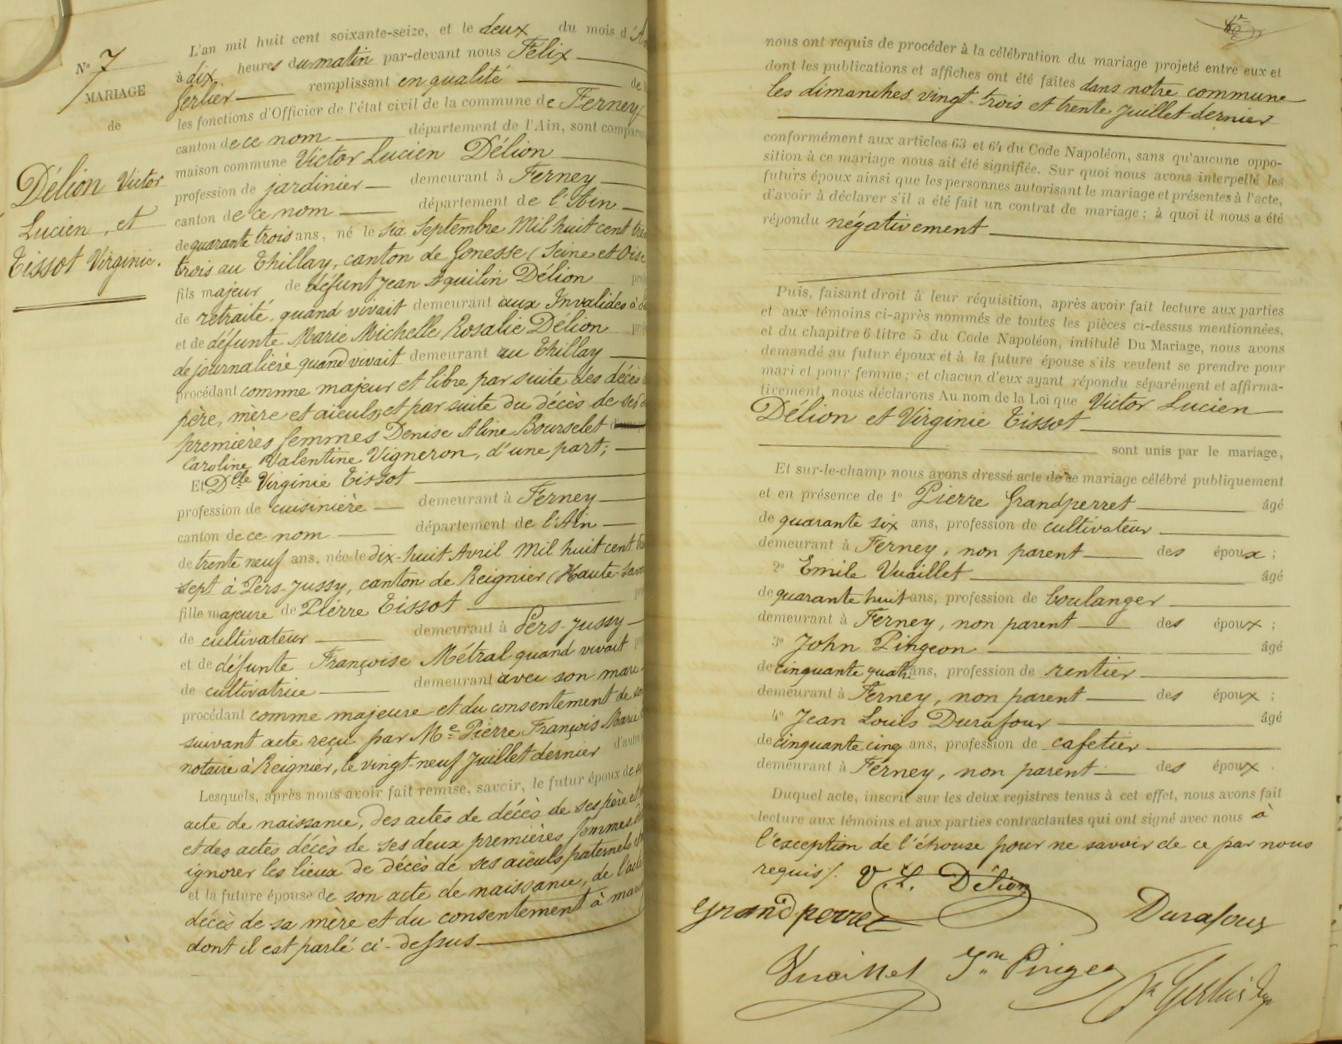 N° 7
MARIAGE
de
Délion Victor
Lucien, et
Tissot Virginie.
L'an mil huit cent soixante-seize, et le deux du mois d'A
à dix heures du matin par-devant nous Félix
Gerlier remplissant en qualité de
les fonctions d'Officier de l'état civil de la commune de Ferney,
canton de ce nom département de l'Ain, sont compar
maison commune Victor Lucien Délion
profession de jardinier demeurant à Ferney
canton de ce nom département de l'Ain
de quarante trois ans, né le six Septembre Mil huit cent tre
trois au Thillay, canton de Gonesse (Seine et Oise
fils majeur de défunt Jean Aquilin Délion
de retraité, quand vivait demeurant aux Invalides à
et de défunte Marie Michelle Rosalie Délion
de journalière quand vivait demeurant au Thillay
procédant comme majeur et libre par suite des décès
père, mère et aïeuls, et par suite du décès de ses
premières femmes Denise Aline Bourselet
Caroline Valentine Vigneron, d'une part;
Et Dlle Virginie Tissot
profession de cuisinière demeurant à Ferney
canton de ce nom département de l'Ain
de trente neuf ans, née le dix-huit Avril Mil huit cent
sept à Pers-Jussy, canton de Reignier (Haute-Savo
fille majeure de Pierre Tissot
de cultivateur demeurant à Pers-Jussy
et de défunte Françoise Métral quand vivait
de cultivatrice demeurant avec son mari
procédant comme majeure et du consentement de so
suivant acte reçu par Me Pierre François Marie
notaire à Reignier, le vingt-neuf Juillet dernier d'autre
Lesquels, après nous avoir fait remise, savoir, le futur époux de
acte de naissance, des actes de décès de ses père et
et des actes décès de ses deux premières femmes
ignorer les lieux de décès de ses aïeuls paternels
et la future épouse de son acte de naissance, de l'acte
décès de sa mère et du consentement à mar
dont il est parlé ci-dessus
nous ont requis de procéder à la célébration du mariage projeté entre eux et
dont les publications et affiches ont été faites dans notre commune
les dimanches vingt-trois et trente Juillet dernier
conformément aux articles 63 et 64 du Code Napoléon, sans qu'aucune oppo-
sition à ce mariage nous ait été signifiée. Sur quoi nous avons interpellé les
futurs époux ainsi que les personnes autorisant le mariage et présentes à l'acte,
d'avoir à déclarer s'il a été fait un contrat de mariage; à quoi il nous a été
répondu négativement
Puis, faisant droit à leur réquisition, après avoir fait lecture aux parties
et aux témoins ci-après nommés de toutes les pièces ci-dessus mentionnées,
et du chapitre 6 titre 5 du Code Napoléon, intitulé Du Mariage, nous avons
demandé au futur époux et à la future épouse s'ils veulent se prendre pour
mari et pour femme; et chacun d'eux ayant répondu séparément et affirma-
tivement, nous déclarons Au nom de la Loi que Victor Lucien
Délion et Virginie Tissot
sont unis par le mariage,
Et sur-le-champ nous avons dressé acte de ce mariage célébré publiquement
et en présence de 1° Pierre Grandperret âgé
de quarante six ans, profession de cultivateur
demeurant à Ferney, non parent des époux;
2° Emile Vuaillet âgé
de quarante huit ans, profession de boulanger
demeurant à Ferney, non parent des époux;
3° John Pingeon âgé
de cinquante quatre ans, profession de rentier
demeurant à Ferney, non parent des époux;
4° Jean Louis Durafour âgé
de cinquante cinq ans, profession de cafetier
demeurant à Ferney, non parent des époux.
Duquel acte, inscrit sur les deux registres tenus à cet effet, nous avons fait
lecture aux témoins et aux parties contractantes qui ont signé avec nous à
l'exception de l'épouse pour ne savoir de ce par nous
requis /. V. L. Délion
Grandperret Durafour
Vuaillet Jn Pingeon Fx Gerlier